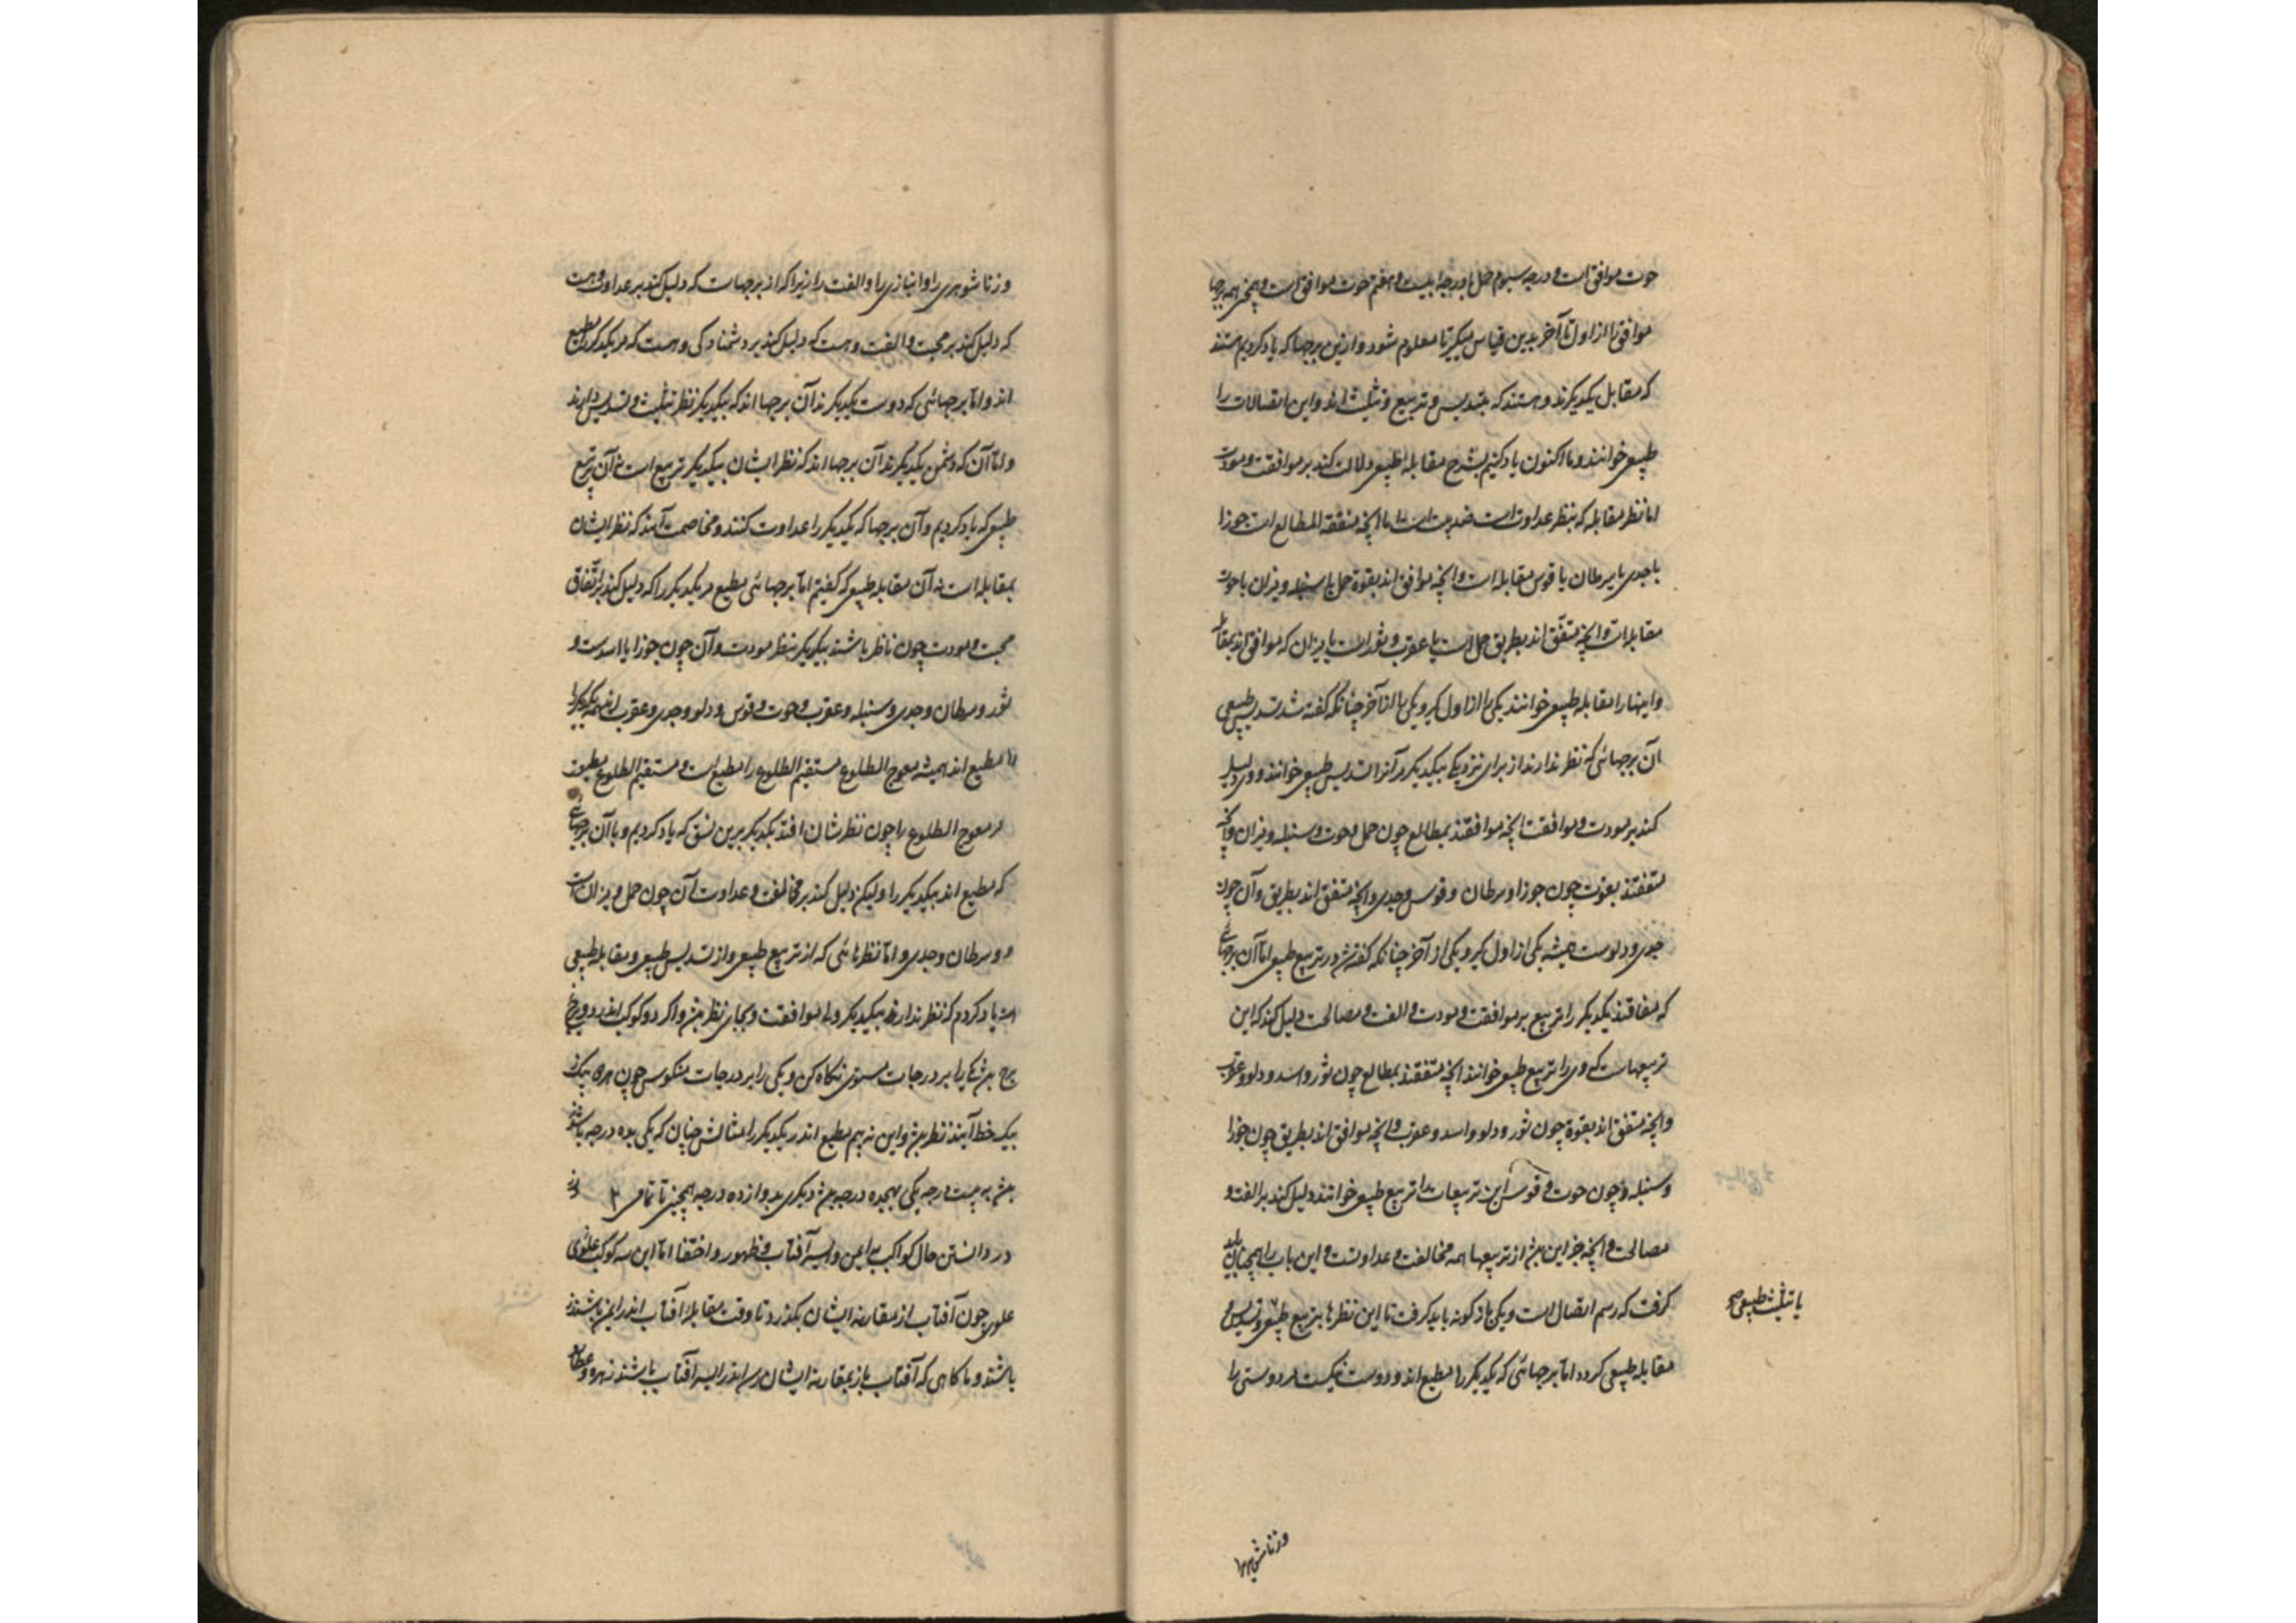 حوت موافق است و درجه سیوم حمل با درجهٔ بیست و هفتم حوت موافق است و همچنین همه برجها
موافق را از اول تا آخر بدین قیاس میگیر تا معلوم شود و ازین برجها که یاد کردیم هستند
که مقابل یکدیگرند و هستند که بتسدیس و تربیع و تثلیث اند و این اتصالات را
طبیعی خوانند و ما اکنون یاد کنیم بشرح مقابلهٔ طبیعی دلالت کند بر موافقت و مودت
اما نظر مقابله که بنظر عداوت است ضد نیست اما آنچه متفقة المطالع است جوزا
با جدی یا سرطان با قوس مقابله است و آنچه موافق اند بقوة حمل با سنبله و میزان با حوت
مقابله است و آنچه متفق اند بطریق حمل است با عقرب و ثور است با میزان که موافق اند بمقابله
و اینها را مقابله طبیعی خوانند یکی را از اول گیر و یکی را از آخر چنانکه گفته شد تسدیس طبیعی
آن برجهائی که نظر ندارند از برای نزدیکی بیکدیگر مر آنرا تسدیس طبیعی خوانند و وی دلیل
کند بر مودت و موافقت آنچه موافقند بمطالع چون حمل و حوت و سنبله و میزان و آنچه
متفقند بقوت چون جوزا و سرطان و قوس و جدی و آنچه متفق اند بطریق و آن چون
جدی و دلوست همیشه یکی از اول گیر و یکی از آخر چنانکه گفته شد در تربیع طبیعی اما آن برجهائی
که متفاقند یکدیگر را تربیع بر موافقت و مودت و الفت و مصالحت دلیل کند که این
تربیعهاست که وی را تربیع طبیعی خوانند آنچه متفقند بمطالع چون ثور و اسد و دلو و عقرب
و آنچه متفق اند بقوة چون ثور و دلو و اسد و عقرب و آنچه موافق اند بطریق چون جوزا
و سنبله و چون حوت و قوس این تربیعات را تربیع طبیعی خوانند دلیل کند بر الفت و
مصالحت و آنچه جز این بیش از تربیعها همه مخالفت و عداوتست و این باب را همچنان باید
گرفت که رسم اتصال است و یکی باژگونه باید گرفت تا این نظرها بتربیع طبیعی و تسدیس و
یا تثلیث طبیعی صح
مقابله طبیعی گردد اما برجهائی که یکدیگر را مطیع اند و دوست نیکست مر دوستی را
وزناشوهری
وزناشوهری را و انبازی را و الفت را زیرا که از برجهاست که دلیل کند بر عداوت و هست
که دلیل کند بر محبت و الفت و هست که دلیل کند بر دشمنادگی و هست که مر یکدیگر را مطیع
اند و اما برجهائی که دوست یکدیگرند آن برجها اند که بیکدیگر نظر تثلیث و تسدیس دارند
و اما آن که دشمن یکدیگرند آن برجها اند که نظر ایشان بیکدیگر تربیع است نه آن تربیع
طبیعی که یاد کردیم و آن برجها که یکدیگر را عداوت کنند و مخاصمت آنند که نظر ایشان
بمقابله است نه آن مقابله طبیعی که گفتیم اما برجهائی مطیع مر یکدیگر را که دلیل کند بر اتفاق
محبت و مودت چون ناظر باشند بیکدیگر بنظر مودت و آن چون جوزا با اسدست و
ثور و سرطان و جدی و سنبله و عقرب و حوت و قوس و دلو و جدی و عقرب اینهمه یکدیگر را
را مطیع اند همیشه معوج الطلوع مستقیم الطلوع را مطیع است و مستقیم الطلوع مطیعت
مر معوج الطلوع را چون نظرشان افتد بیکدیگر برین نسق که یاد کردیم و با آن برجهائی
که مطیع اند بیکدیگر را ولیکن دلیل کند بر مخالفت و عداوت آن چون حمل و میزان است
و سرطان و جدی و اما نظرهائی که از تربیع طبیعی و از تسدیس طبیعی و مقابله طبیعی
است یاد کردم که نظر ندارند بیکدیگر و اما موافقت و بجای نظر بیش و اگر دو کوکب اندر دو برج
برج بیش یکی را بر درجات مستوی نگاه کن و یکی را بر درجات منکوس چون هر دو بیک
بیک خط آیند نظر بیش و این نیز هم مطیع اند یکدیگر را مثالش چنان که یکی بده درجه باشد
بیش به بیست درجه یکی بهجده درجه بیش دیگری بدوازده درجه همچنین تا تمامی ۲
در دانستن حال کواکب به ایمن و ایسر آفتاب و ظهور و اختفا اما این سه کوکب علوی
علوی چون آفتاب از مقارنه ایشان بگذرد تا وقت مقابلهٔ آفتاب اندر ایمن باشند
باشند و تا گاهی که آفتاب باز بمقارنه ایشان رسد اندر ایسر آفتاب باشند زهره و عطارد